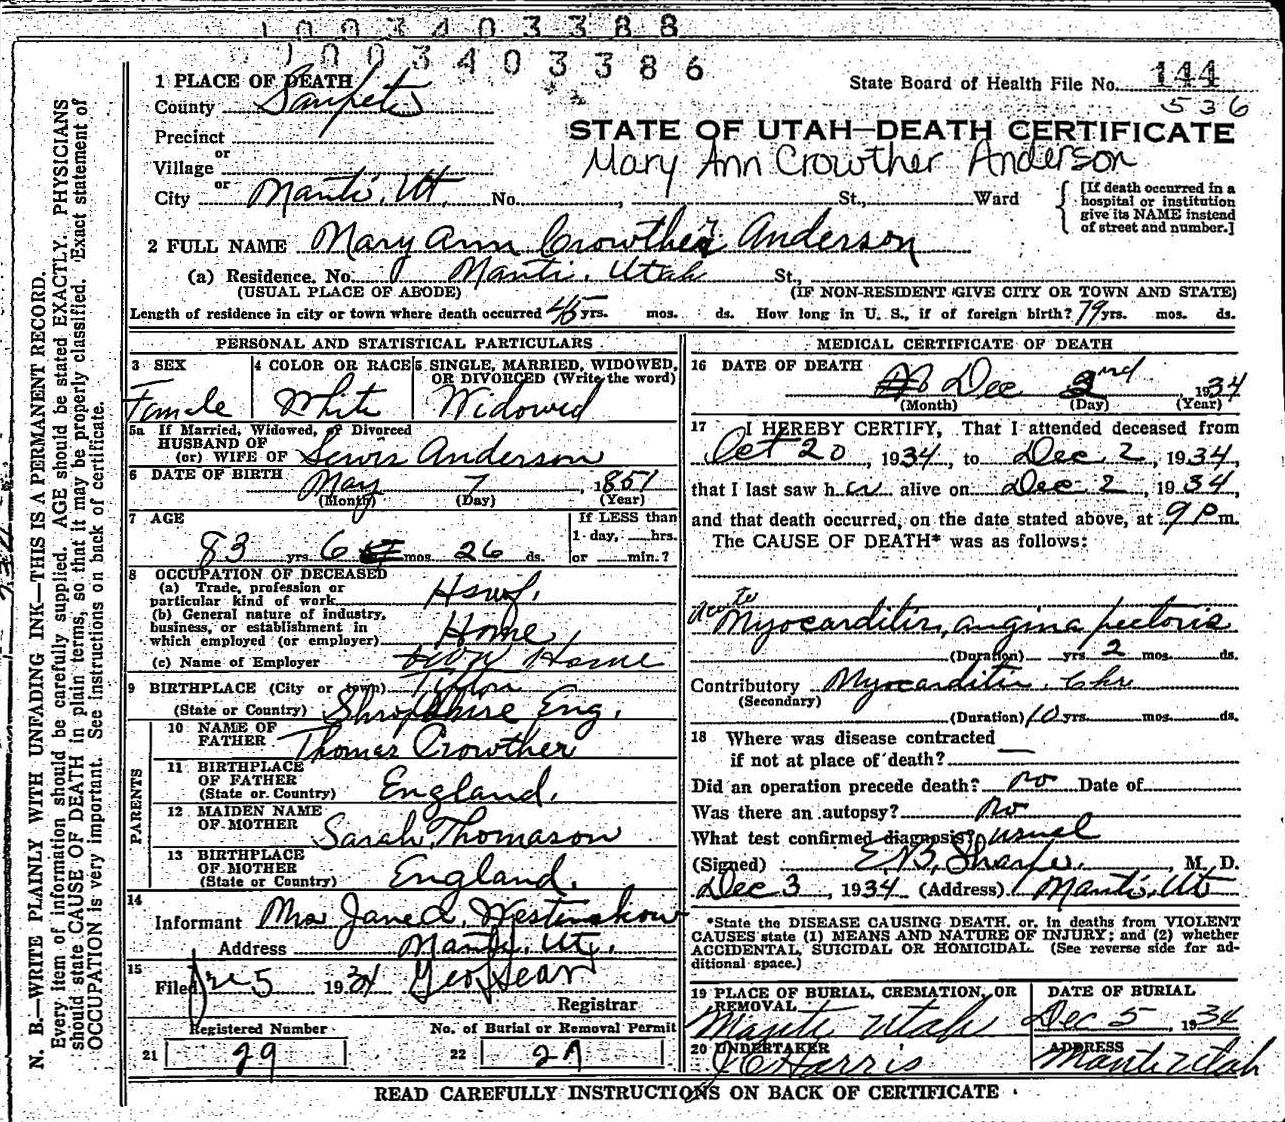 1003403388
1003403386
1 PLACE OF DEATH
County Sanpete
State Board of Health File No. 144
536
Precinct
or
Village
or
City Manti, Ut. No. , St., Ward
STATE OF UTAH—DEATH CERTIFICATE
Mary Ann Crowther Anderson
[If death occurred in a
hospital or institution
give its NAME instead
of street and number.]
2 FULL NAME Mary Ann Crowther Anderson
(a) Residence. No. Manti. Utah St.
(USUAL PLACE OF ABODE) (IF NON-RESIDENT GIVE CITY OR TOWN AND STATE)
Length of residence in city or town where death occurred 45 yrs. mos. ds. How long in U. S., if of foreign birth? 79 yrs. mos. ds.
PERSONAL AND STATISTICAL PARTICULARS
3 SEX
Female
4 COLOR OR RACE
White
5 SINGLE, MARRIED, WIDOWED,
OR DIVORCED (Write the word)
Widowed
5a If Married, Widowed, or Divorced
HUSBAND OF
(or) WIFE OF Lewis Anderson
6 DATE OF BIRTH May 7, 1851
(Month) (Day) (Year)
7 AGE
83 yrs. 6 mos. 26 ds.
If LESS than
1 day, hrs.
or min.?
8 OCCUPATION OF DECEASED
(a) Trade, profession or
particular kind of work Hswf.
(b) General nature of industry,
business, or establishment in
which employed (or employer) Home
(c) Name of Employer own Home
9 BIRTHPLACE (City or town)
(State or Country) Shropshire Eng.
PARENTS
10 NAME OF
FATHER Thomas Crowther
11 BIRTHPLACE
OF FATHER
(State or Country) England.
12 MAIDEN NAME
OF MOTHER Sarah Thomason
13 BIRTHPLACE
OF MOTHER
(State or Country) England.
14
Informant Mrs Jane A. Westenskow
Address Manti, Ut.
15
Filed 5 1934 Geo
Registrar
Registered Number
21 29
No. of Burial or Removal Permit
22 27
MEDICAL CERTIFICATE OF DEATH
16 DATE OF DEATH
Dec 2nd 1934
(Month) (Day) (Year)
17 I HEREBY CERTIFY, That I attended deceased from
Oct 20, 1934, to Dec. 2, 1934,
that I last saw h er alive on Dec. 2, 1934,
and that death occurred, on the date stated above, at 9 P m.
The CAUSE OF DEATH* was as follows:
Acute
Myocarditis, angina pectoris
(Duration) yrs. 2 mos. ds.
Contributory Myocarditis. Chr
(Secondary)
(Duration) 10 yrs. mos. ds.
18 Where was disease contracted
if not at place of death? —
Did an operation precede death? no Date of
Was there an autopsy? No
What test confirmed diagnosis? usual
(Signed) , M. D.
Dec 3, 1934 (Address) Manti, Ut
*State the DISEASE CAUSING DEATH, or, in deaths from VIOLENT
CAUSES state (1) MEANS AND NATURE OF INJURY; and (2) whether
ACCIDENTAL, SUICIDAL OR HOMICIDAL. (See reverse side for ad-
ditional space.)
19 PLACE OF BURIAL, CREMATION, OR
REMOVAL
Manti Utah
DATE OF BURIAL
Dec 5, 1934
20 UNDERTAKER
J C Harris
ADDRESS
Manti Utah
READ CAREFULLY INSTRUCTIONS ON BACK OF CERTIFICATE
N. B.—WRITE PLAINLY WITH UNFADING INK—THIS IS A PERMANENT RECORD.
Every item of information should be carefully supplied. AGE should be stated EXACTLY. PHYSICIANS
should state CAUSE OF DEATH in plain terms, so that it may be properly classified. Exact statement of
OCCUPATION is very important. See instructions on back of certificate.